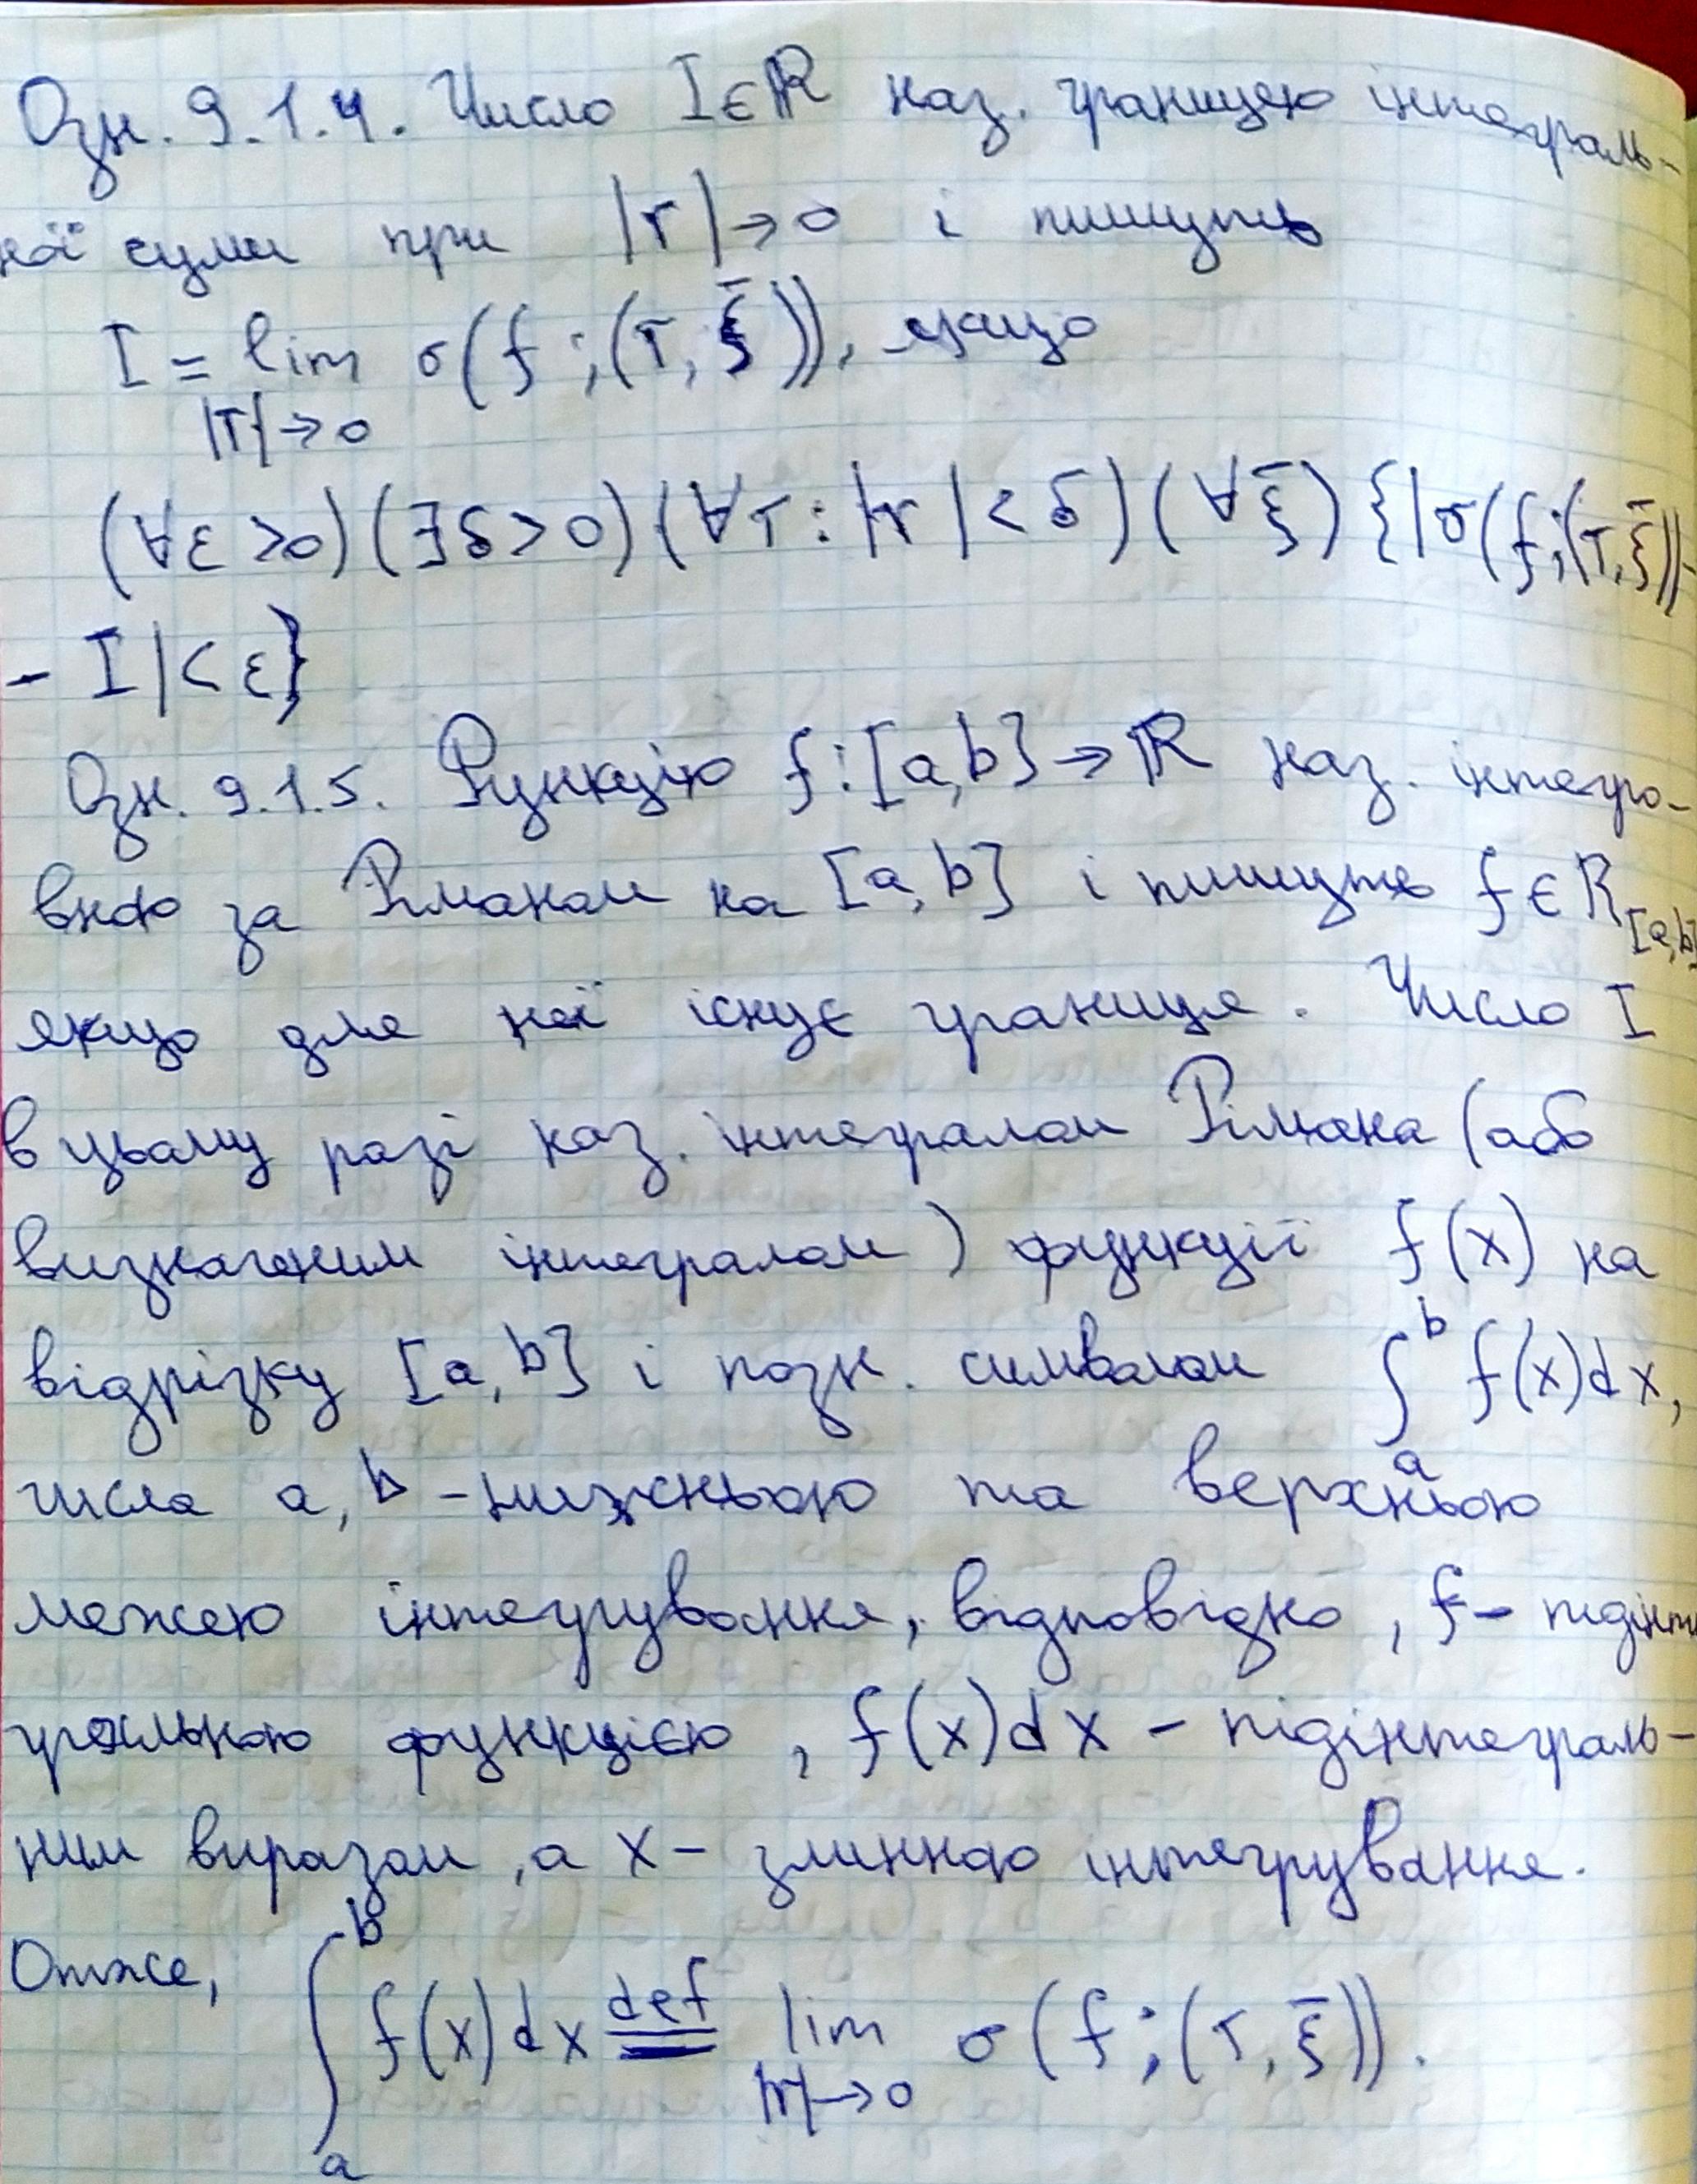 Озн. 9.1.4. Число I∈ℝ наз. границею інтеграль-
ної суми при |τ|→0 і пишуть
I = lim σ(f;(τ,ξ̄)), якщо
|τ|→0
(∀ε>0)(∃δ>0)(∀τ:|τ|<δ)(∀ξ̄){|σ(f;(τ,ξ̄))-
- I|<ε}
Озн. 9.1.5. Функцію f:[a,b]→ℝ наз. інтегро-
вною за Ріманом на [a,b] і пишуть f∈R[a,b]
якщо для неї існує границя. Число I
в цьому разі наз. інтегралом Рімана (або
визначеним інтегралом) функції f(x) на
відрізку [a,b] і позн. символом ∫ₐᵇ f(x)dx,
числа a, b - нижньою та верхньою
межею інтегрування, відповідно, f - підінте
гральною функцією, f(x)dx - підінтеграль-
ним виразом, а x - змінною інтегрування.
Отже, ∫ₐᵇ f(x)dx def= lim σ(f;(τ,ξ̄)).
|τ|→0